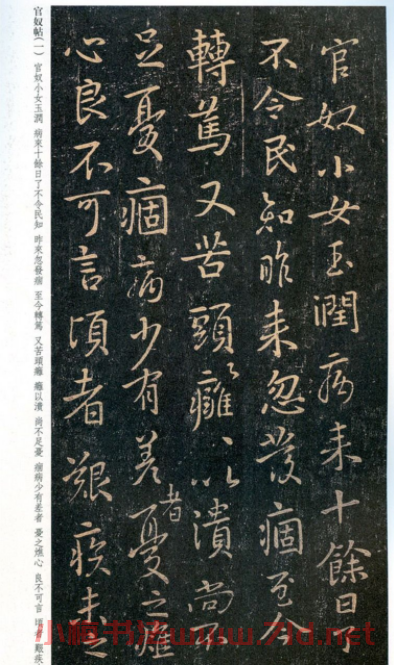 官奴小女玉潤病来十餘日了
不令民知昨来忽發痼至今
轉篤又苦頭癰〻以潰尚不
足憂痼病少有差者憂之燋
心良不可言頃者艱疾未之
官奴帖(一) 官奴小女玉潤 病來十餘日了不令民知 昨來忽發痼 至今轉篤 又苦頭癰 癰以潰 尚不足憂 痼病少有差者 憂之燋心 良不可言 頃者艱疾
www.7ld.net